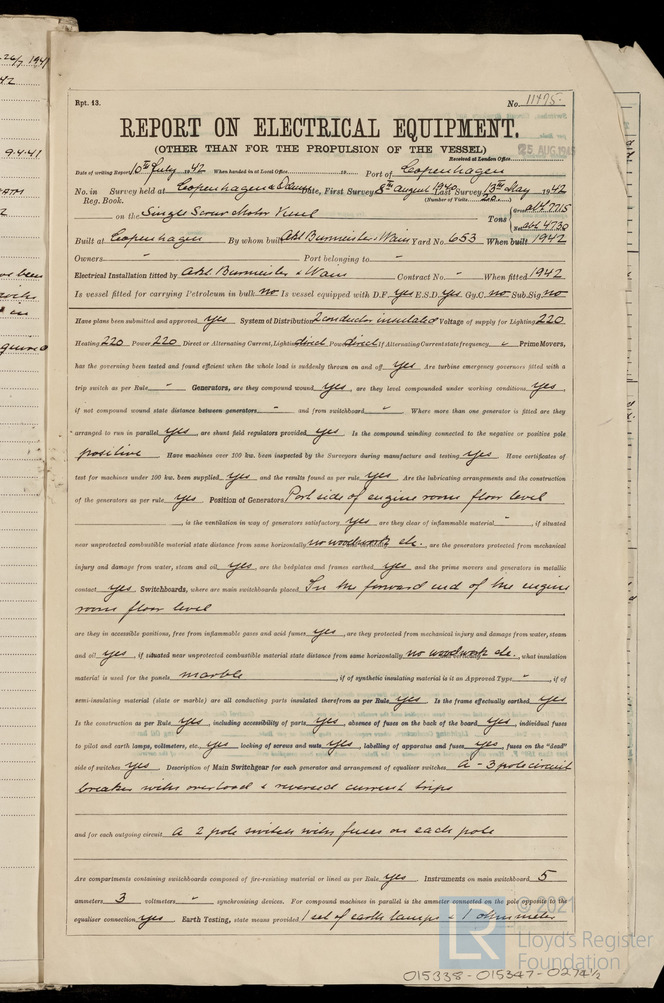 Rpt. 13.
No. 11475.
REPORT ON ELECTRICAL EQUIPMENT.
(OTHER THAN FOR THE PROPULSION OF THE VESSEL)
Received at London Office
25 AUG 194
Date of writing Report 10th July 1942 When handed in at Local Office 19 Port of Copenhagen
No. in Survey held at Copenhagen & Date, First Survey 8th August 1940 Last Survey 13th May 1942
Reg. Book. (Number of Visits 20.)
on the Single Screw Motor Vessel Tons Gross abt. 7715
Net abt 4730
Built at Copenhagen By whom built Akt. Burmeister & Wain Yard No. 653 When built 1942
Owners - Port belonging to -
Electrical Installation fitted by Akt. Burmeister & Wain Contract No. - When fitted 1942
Is vessel fitted for carrying Petroleum in bulk no Is vessel equipped with D.F. yes E.S.D. yes Gy.C. no Sub.Sig. no
Have plans been submitted and approved yes System of Distribution 2 conductor insulated Voltage of supply for Lighting 220
Heating 220 Power 220 Direct or Alternating Current, Lighting direct Power direct If Alternating Current state frequency - Prime Movers,
has the governing been tested and found efficient when the whole load is suddenly thrown on and off yes Are turbine emergency governors fitted with a
trip switch as per Rule - Generators, are they compound wound yes, are they level compounded under working conditions yes,
if not compound wound state distance between generators - and from switchboard - Where more than one generator is fitted are they
arranged to run in parallel yes, are shunt field regulators provided yes Is the compound winding connected to the negative or positive pole
positive Have machines over 100 kw. been inspected by the Surveyors during manufacture and testing yes Have certificates of
test for machines under 100 kw. been supplied yes and the results found as per rule yes Are the lubricating arrangements and the construction
of the generators as per rule yes Position of Generators Port side of engine room floor level
, is the ventilation in way of generators satisfactory yes, are they clear of inflammable material -, if situated
near unprotected combustible material state distance from same horizontally no woodworks etc. are the generators protected from mechanical
injury and damage from water, steam and oil yes, are the bedplates and frames earthed yes and the prime movers and generators in metallic
contact yes Switchboards, where are main switchboards placed In the forward end of the engine
room floor level
are they in accessible positions, free from inflammable gases and acid fumes yes, are they protected from mechanical injury and damage from water, steam
and oil yes, if situated near unprotected combustible material state distance from same horizontally no woodwork etc., what insulation
material is used for the panels marble, if of synthetic insulating material is it an Approved Type -, if of
semi-insulating material (slate or marble) are all conducting parts insulated therefrom as per Rule yes Is the frame effectually earthed yes
Is the construction as per Rule yes, including accessibility of parts yes, absence of fuses on the back of the board yes, individual fuses
to pilot and earth lamps, voltmeters, etc., yes, locking of screws and nuts yes, labelling of apparatus and fuses yes, fuses on the "dead"
side of switches yes Description of Main Switchgear for each generator and arrangement of equaliser switches a - 3 pole circuit
breaker with overload & reversed current trips
and for each outgoing circuit a 2 pole switch with fuses on each pole
Are compartments containing switchboards composed of fire-resisting material or lined as per Rule yes Instruments on main switchboard 5
ammeters 3 voltmeters - synchronising devices. For compound machines in parallel is the ammeter connected on the pole opposite to the
equaliser connection yes Earth Testing, state means provided 1 set of earth lamps & 1 ohmmeter
© 2021
LR
Lloyd's Register
Foundation
015338-015347-0274½